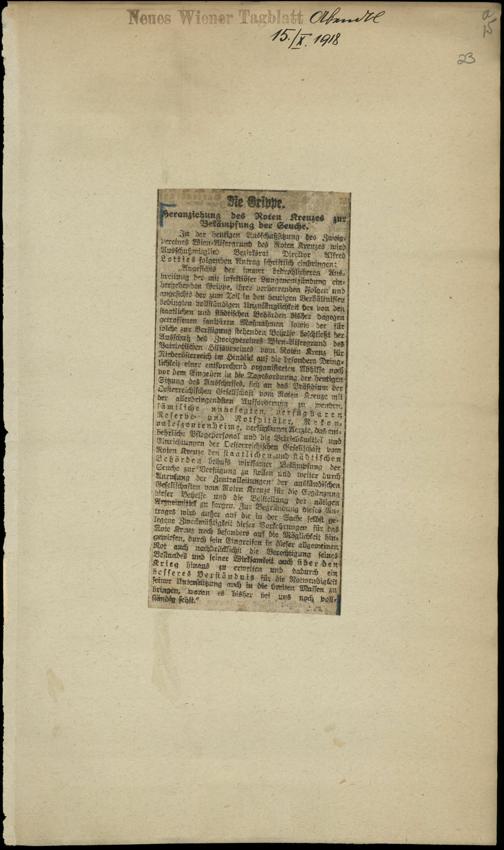 Neues Wiener Tagblatt Abendbl
15./X. 1918
23
Die Grippe.
Heranziehung des Roten Kreuzes zur
Bekämpfung der Seuche.
In der heutigen Ausschußsitzung des Zweig-
vereines Wien-Alsergrund des Roten Kreuzes wird
Ausschußmitglied Bezirksrat Direktor Alfred
folgenden Antrag schriftlich einbringen:
„Angesichts der immer bedrohlicheren Aus-
breitung der mit infektiöser Lungenentzündung ein-
hergehenden Grippe, ihrer verheerenden Folgen und
angesichts der zum Teil in den heutigen Verhältnissen
bedingten vollständigen Unzulänglichkeit der von den
staatlichen und städtischen Behörden bisher dagegen
getroffenen sanitären Maßnahmen sowie der für
solche zur Verfügung stehenden Behelfe beschließt der
Ausschuß des Zweigvereines Wien-Alsergrund des
Patriotischen Hilfsvereines vom Roten Kreuz für
Niederösterreich im Hinblick auf die besondere Dring-
lichkeit einer entsprechend organisierten Abhilfe noch
vor dem Eingehen in die Tagesordnung der heutigen
Sitzung des Ausschusses, sich an das Präsidium der
Oesterreichischen Gesellschaft vom Roten Kreuze mit
der allerdringendsten Aufforderung zu wenden,
sämtliche unbelegten, verfügbaren
Reserve- und Notspitäler, Rekon-
valeszentenheime, verfügbaren Aerzte, das ent-
behrliche Pflegepersonal und die Betriebsmittel und
Einrichtungen der Oesterreichischen Gesellschaft vom
Roten Kreuze den staatlichen und städtischen
Behörden behufs wirksamer Bekämpfung der
Seuche zur Verfügung zu stellen und weiter durch
Anrufung der Zentralleitungen der ausländischen
Gesellschaften vom Roten Kreuze für die Ergänzung
dieser Behelfe und die Beistellung der nötigen
Arzneimittel zu sorgen. Zur Begründung dieses An-
trages wird außer auf die in der Sache selbst ge-
legene Zweckmäßigkeit dieser Vorkehrungen für das
Rote Kreuz noch besonders auf die Möglichkeit hin-
gewiesen, durch sein Eingreifen in dieser allgemeinen
Not auch nachdrücklichst die Berechtigung seines
Bestandes und seiner Wirksamkeit auch über den
Krieg hinaus zu erweisen und dadurch ein
besseres Verständnis für die Notwendigkeit
seiner Unterstützung auch in die breiten Massen zu
bringen, woran es bisher bei uns noch voll-
ständig fehlt."